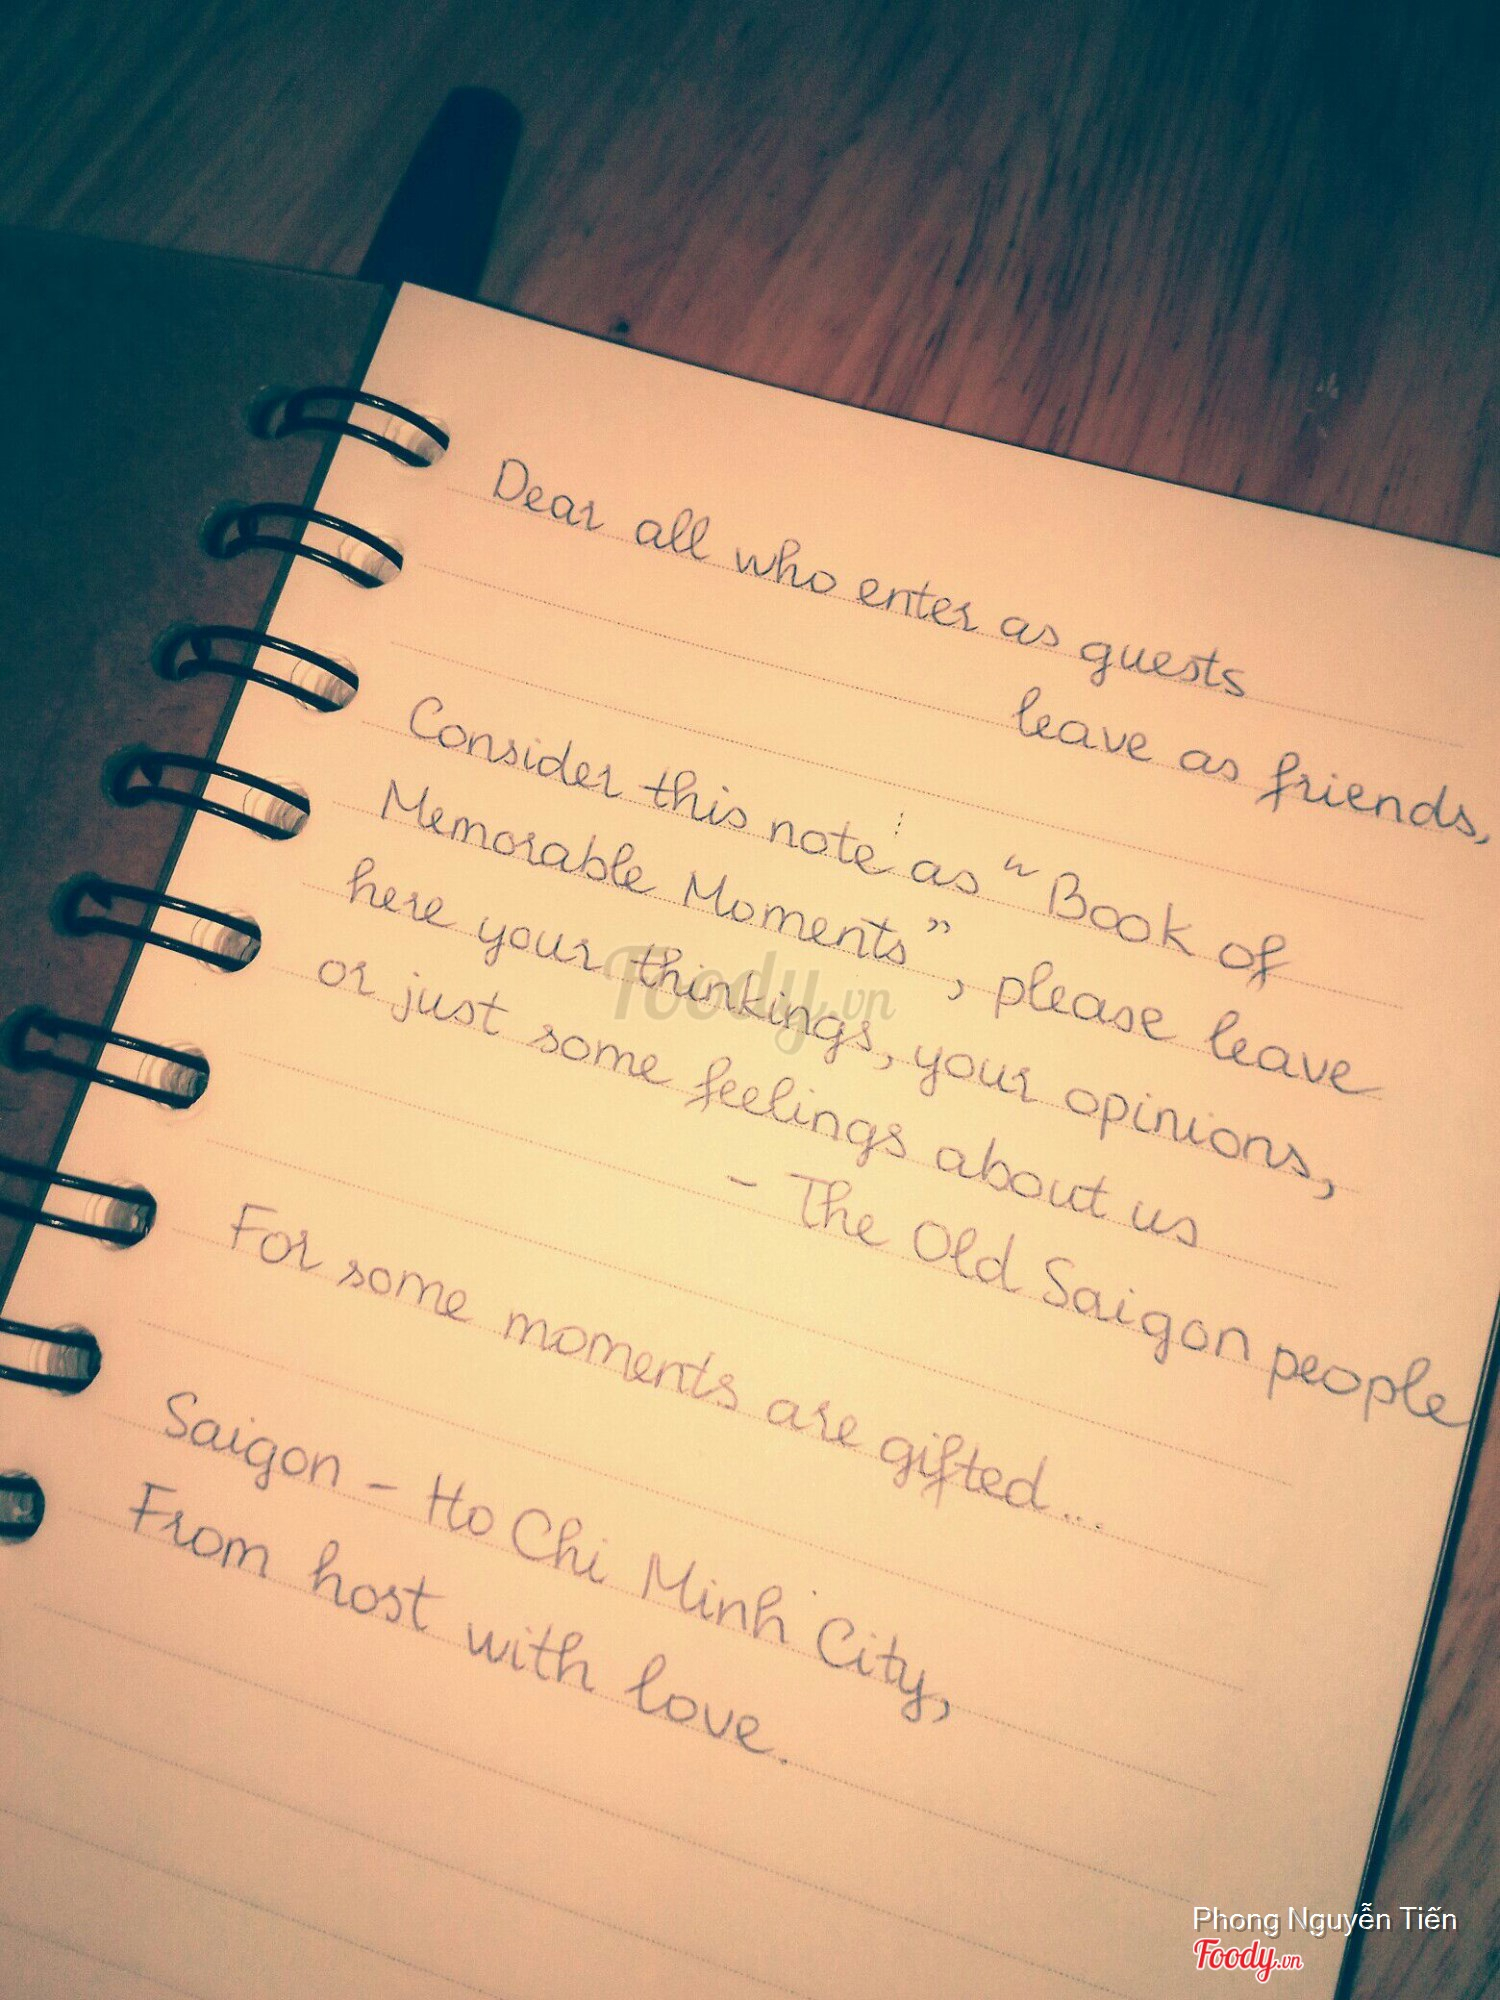 Dear all who enter as guests
leave as friends,
Consider this note as "Book of
Memorable Moments", please leave
here your thinkings, your opinions,
or just some feelings about us
- The Old Saigon people
For some moments are gifted...
Saigon - Ho Chi Minh City,
From host with love.
Foody.vn
Phong Nguyễn Tiến
Foody.vn